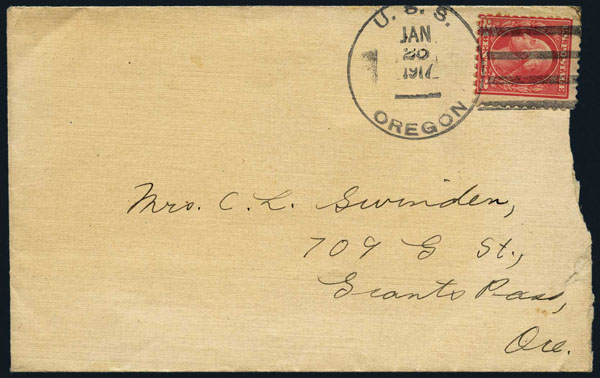 U. S. S.
JAN
26
1917
OREGON
Mrs. C. L. Swinden,
709 G St.,
Grants Pass,
Ore.